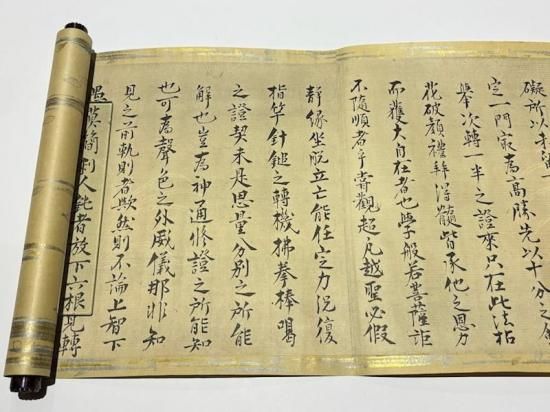 礙所以未
定一門最為高勝先以十分之
舉次轉一半之證來只在此法拈
花破顔禮拜得髓皆承他之恩力
而獲大自在者也學般若菩薩詎
不隨順者乎嘗觀超凡越聖必假
靜緣坐脫立亡能任定力況復
指竿針鎚之轉機拂拳棒喝
之證契未是思量分別之所能
解也豈為神通修證之所能知
也可為聲色之外威儀那非知
見之前軌則者歟然則不論上智下
愚莫簡利人鈍者放下六根見轉